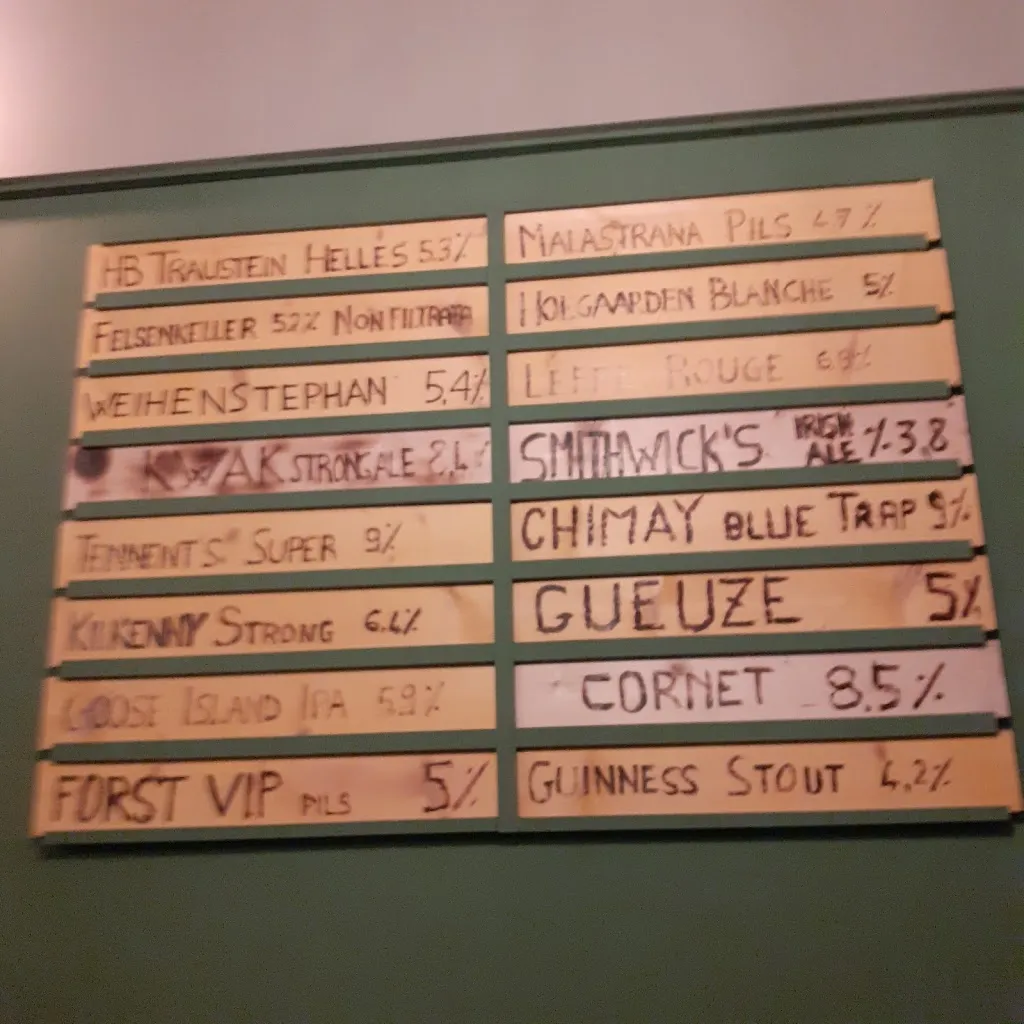 HB TRAUSTEIN HELLES 5.3%
FELSENKELLER 5.2% NON FILTRATA
WEIHENSTEPHAN 5,4%
KWAK STRONG ALE 8,4%
TENNENT'S SUPER 9%
KILKENNY STRONG 6.4%
GOOSE ISLAND IPA 5.9%
FORST VIP PILS 5%
MALASTRANA PILS 4.7%
HOEGAARDEN BLANCHE 5%
LEFFE ROUGE
SMITHWICK'S IRISH ALE %3,8
CHIMAY BLUE TRAP 9%
GUEUZE 5%
CORNET 8.5%
GUINNESS STOUT 4.2%